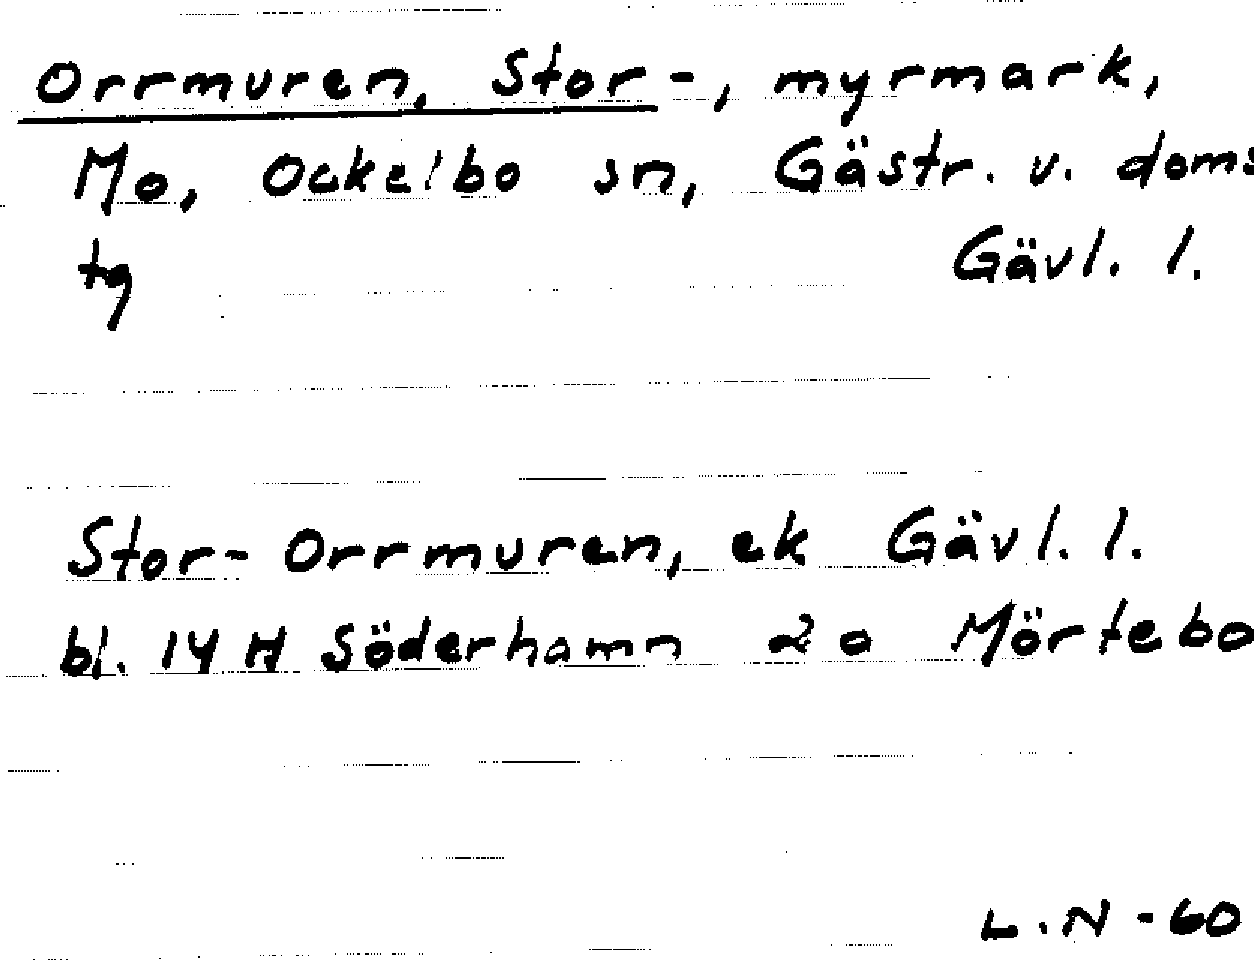 Orrmuren, Stor-, myrmark,
Mo, Ockelbo sn, Gästr. v. doms
tg Gävl. l.
Stor-Orrmuren, ek Gävl. l.
bl. 14 H Söderhamn 2 o Mörtebo
L.N -60